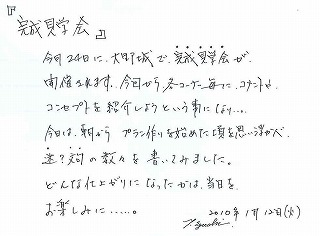 『完成見学会』
今月24日に、大野城で、完成見学会が、
開催されます。今回から、各コーナー毎に、コメントや、
コンセプトを紹介しようという事になり…。
今日は、朝から プラン作りを始めた頃を思い浮かべ、
迷？文句の数々を書いてみました。
どんな仕上がりになったかは、当日を、
お楽しみに……。
2010年1月12日(火)